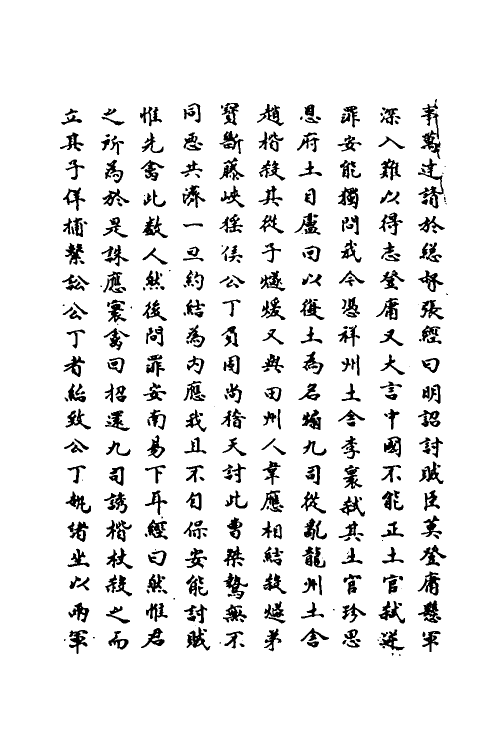 事萬達請於総督張經曰明詔討賊臣莫登庸懸軍
深入難以得志登庸又大言中國不能正土官弑逆
罪安能獨問我今憑祥州土舍李寰弑其土官珍思
恩府土目盧回以復土為名煽九司從亂龍州土舍
趙楷殺其從子燧煖又與田州人韋應相結殺燧弟
寶斷藤峽猺侯公丁負固尚稽天討此曹桀驁無不
同惡共濟一旦約結為内應我且不自保安能討賊
惟先禽此數人然後問罪安南易下耳經曰然惟君
之所為於是誅應寰禽回招還九司誘楷杖殺之而
立其子佯捕繫訟公丁者紿致公丁就坐以兩軍